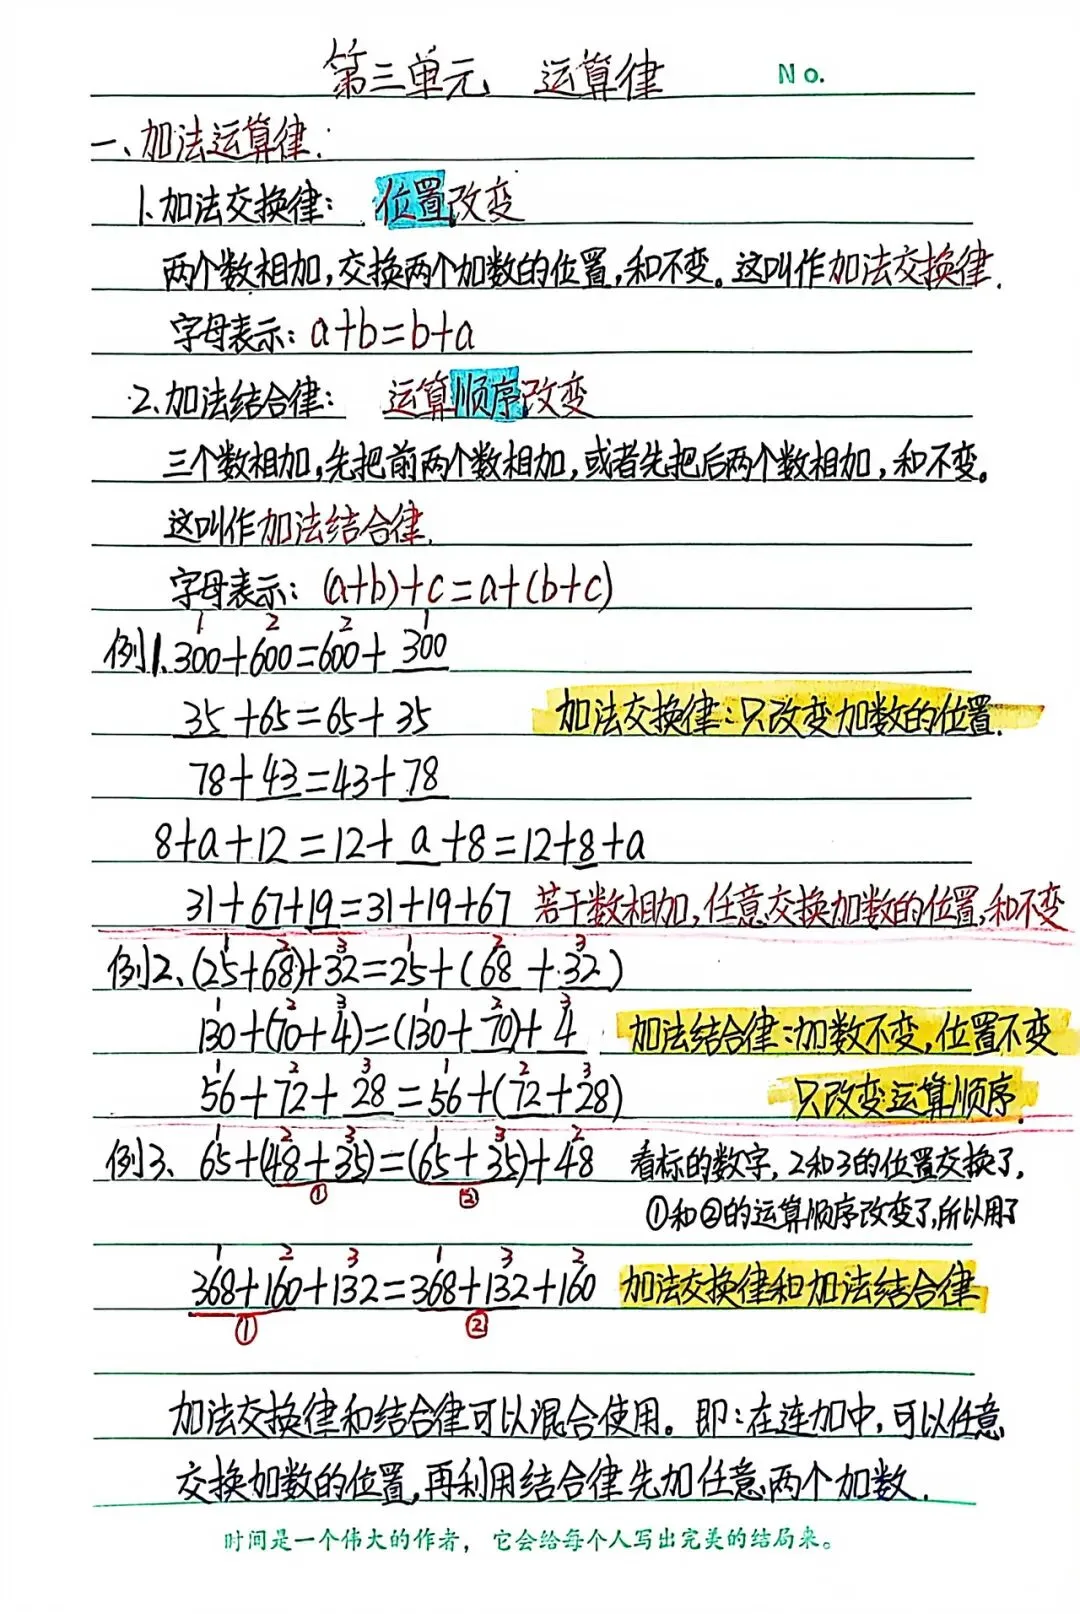 第三单元 运算律 No.
一、加法运算律:
1.加法交换律: 位置改变
两个数相加,交换两个加数的位置,和不变。这叫作加法交换律.
字母表示: a+b=b+a
2.加法结合律: 运算顺序改变
三个数相加,先把前两个数相加,或者先把后两个数相加,和不变。
这叫作加法结合律.
字母表示: (a+b)+c=a+(b+c)
1 2 2 1
例1.300+600=600+300
35+65=65+35 加法交换律:只改变加数的位置.
78+43=43+78
8+a+12=12+a+8=12+8+a
31+67+19=31+19+67 若干数相加,任意交换加数的位置,和不变
1 2 3 1 2 3
例2、(25+68)+32=25+(68+32)
1 2 3 1 2 3
130+(70+4)=(130+70)+4 加法结合律:加数不变,位置不变
1 2 3 1 2 3
56+72+28=56+(72+28) 只改变运算顺序.
1 2 3 1 3 2
例3、65+(48+35)=(65+35)+48 看标的数字,2和3的位置交换了,
① ② ①和②的运算顺序改变了,所以用了
1 2 3 1 3 2
368+160+132=368+132+160 加法交换律和加法结合律
① ②
加法交换律和结合律可以混合使用。即:在连加中,可以任意
交换加数的位置,再利用结合律先加任意两个加数.
时间是一个伟大的作者，它会给每个人写出完美的结局来。